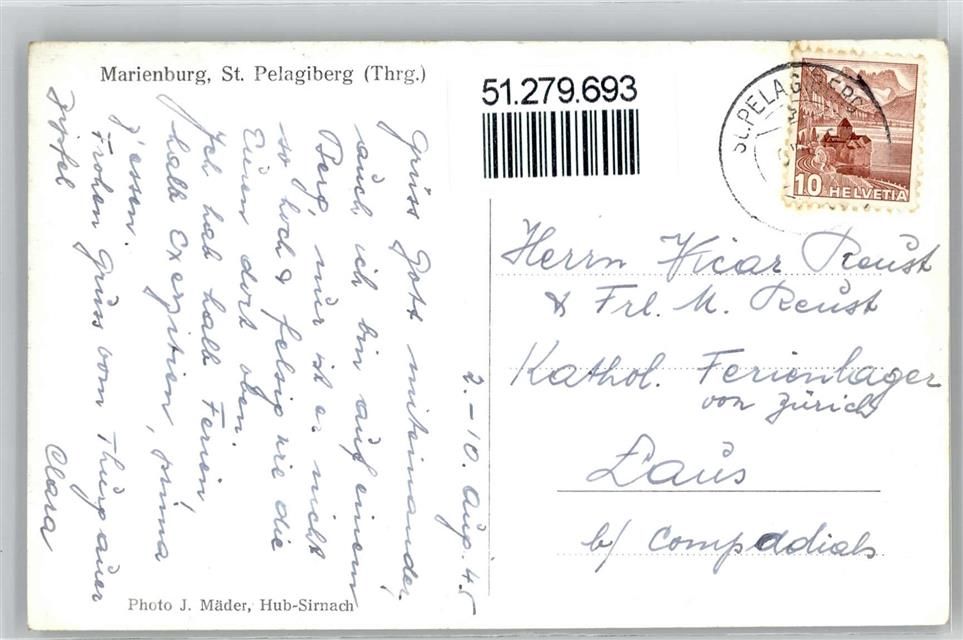 Marienburg, St. Pelagiberg (Thrg.)
51.279.693
ST. PELAGIBERG
10 HELVETIA
2. - 10. Aug. 45
Grüss Gott miteinander,
auch ich bin auf einem
Berg, nur ist er nicht
so hoch & felsig wie die
Euren dort oben.
Ich hab halb Ferien,
halb Exerzitien, prima
z'essen.
Frohen Gruss vom Thurgauer
Zipfel
Clara
Herrn Vicar Reust
& Frl. M. Reust
Kathol. Ferienlager
von Zürich
Laus
b/ Compadials
Photo J. Mäder, Hub-Sirnach